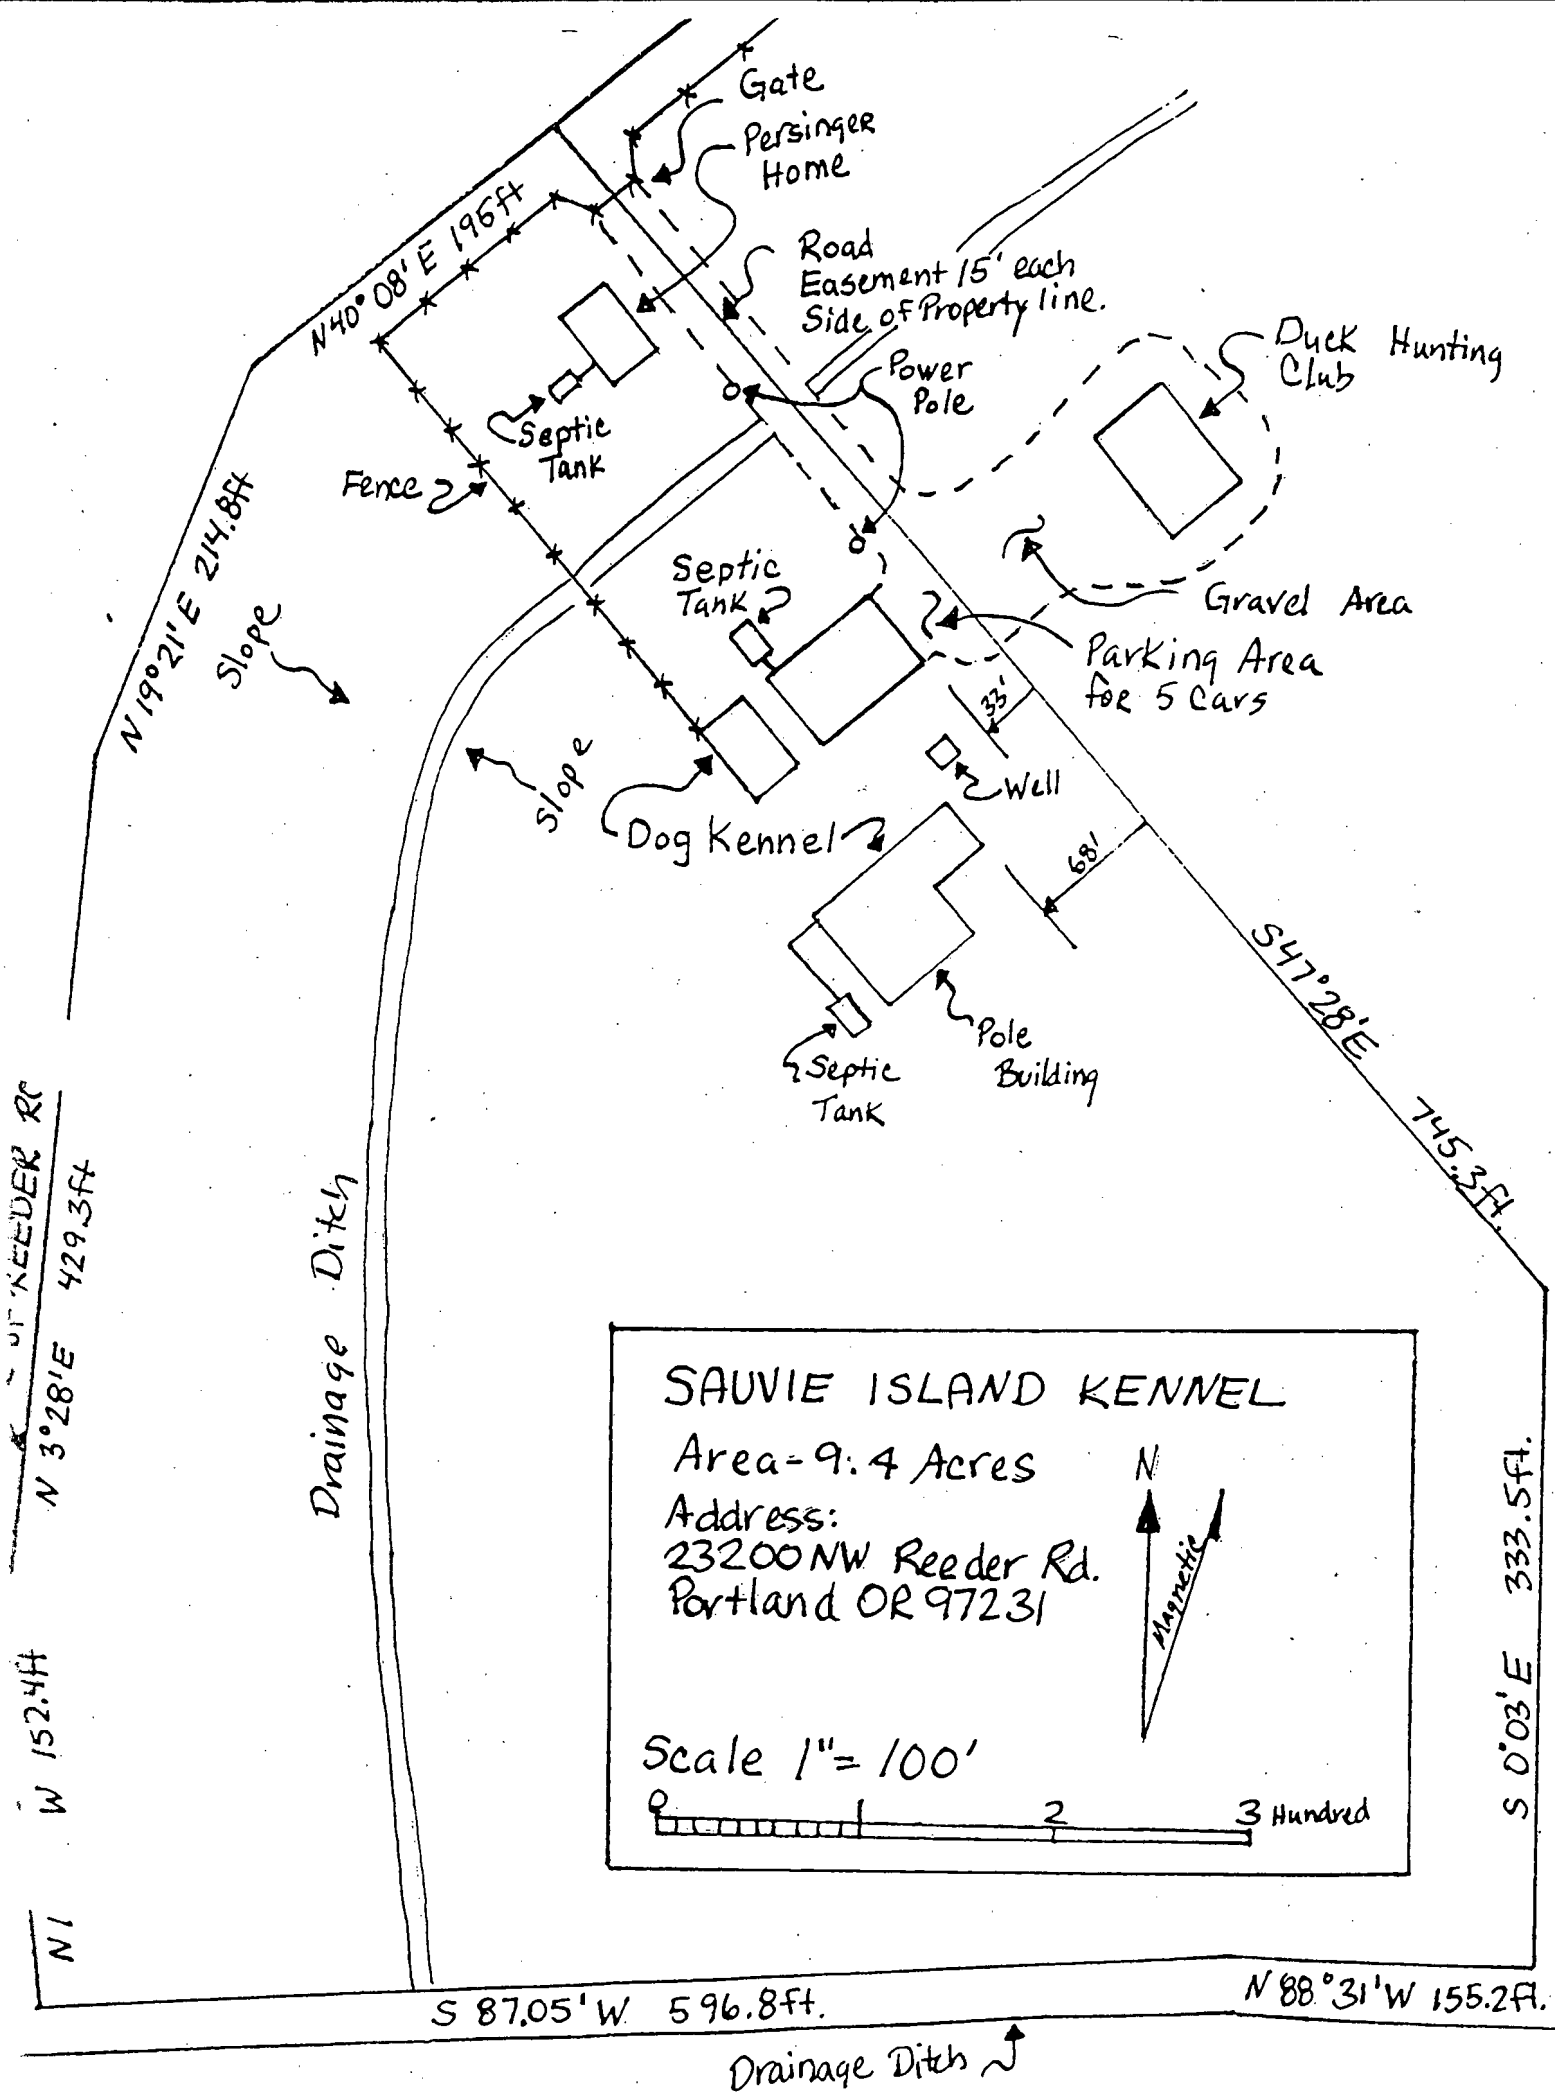 Gate
Persinger
Home
N 40° 08' E 195ft
Road
Easement 15' each
Side of Property line.
Duck Hunting
Club
Power
Pole
Septic
Tank
Fence
N 19° 21' E 214.8ft
Slope
Septic
Tank
Gravel Area
Parking Area
for 5 Cars
33'
Slope
Well
Dog Kennel
68'
S 47° 28' E
745.3ft.
Pole
Building
Septic
Tank
REEDER
N 3° 28' E 429.3ft
Drainage Ditch
SAUVIE ISLAND KENNEL
Area-9.4 Acres
Address:
23200 NW Reeder Rd.
Portland OR 97231
N
Magnetic
Scale 1"= 100'
0 1 2 3 Hundred
S 0°03' E 333.5ft.
N 1 W 152.4ft
S 87.05' W 596.8ft.
N 88° 31' W 155.2ft.
Drainage Ditch